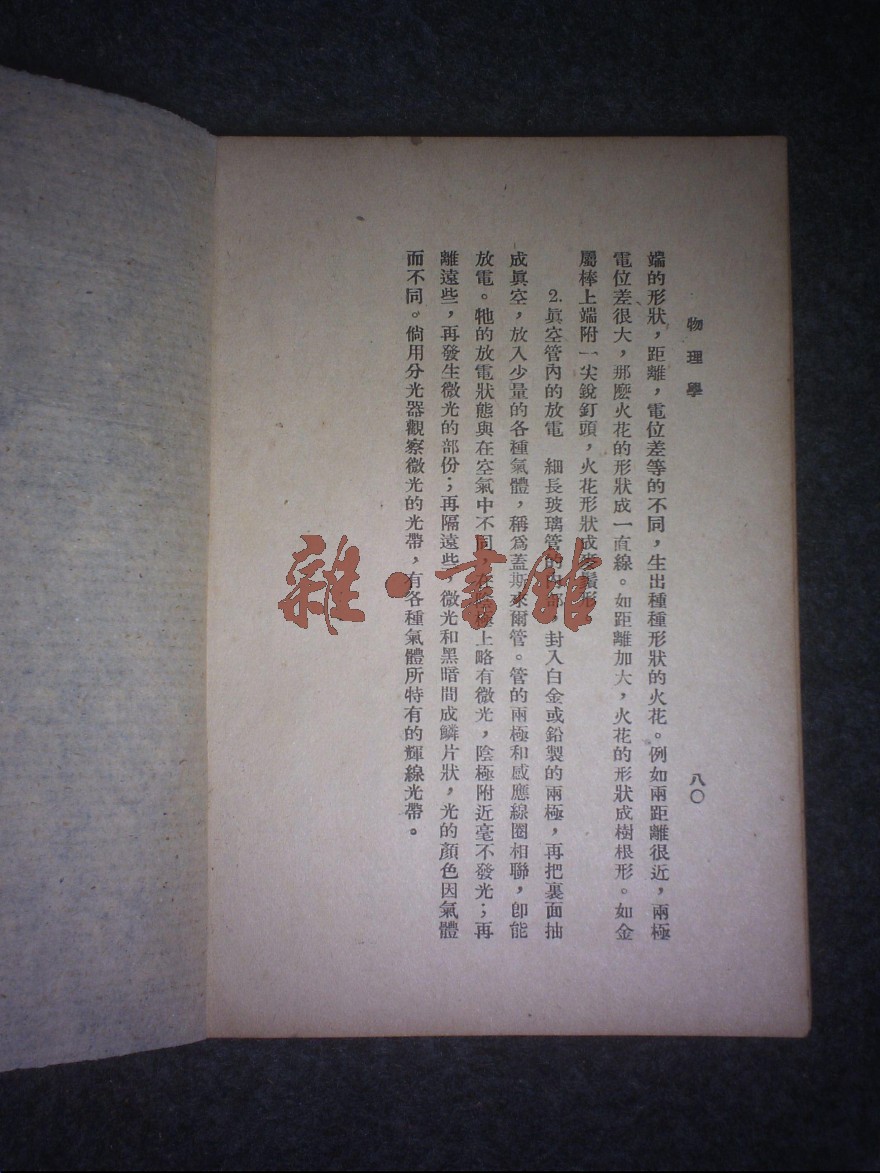 物理學
八〇
端的形狀，距離，電位差等的不同，生出種種形狀的火花。例如兩距離很近，兩極
電位差很大，那麼火花的形狀成一直線。如距離加大，火花的形狀成樹根形。如金
屬棒上端附一尖銳釘頭，火花形狀成麥鬚形
2. 眞空管內的放電　細長玻璃管的內部，封入白金或鉛製的兩極，再把裏面抽
成眞空，放入少量的各種氣體，稱爲蓋斯來爾管。管的兩極和感應線圈相聯，卽能
放電。牠的放電狀態與在空氣中不同，在陰極上略有微光，陰極附近毫不發光；再
離遠些，再發生微光的部份；再隔遠些，微光和黑暗間成鱗片狀，光的顏色因氣體
而不同。倘用分光器觀察微光的光帶，有各種氣體所特有的輝線光帶。
雜·書館